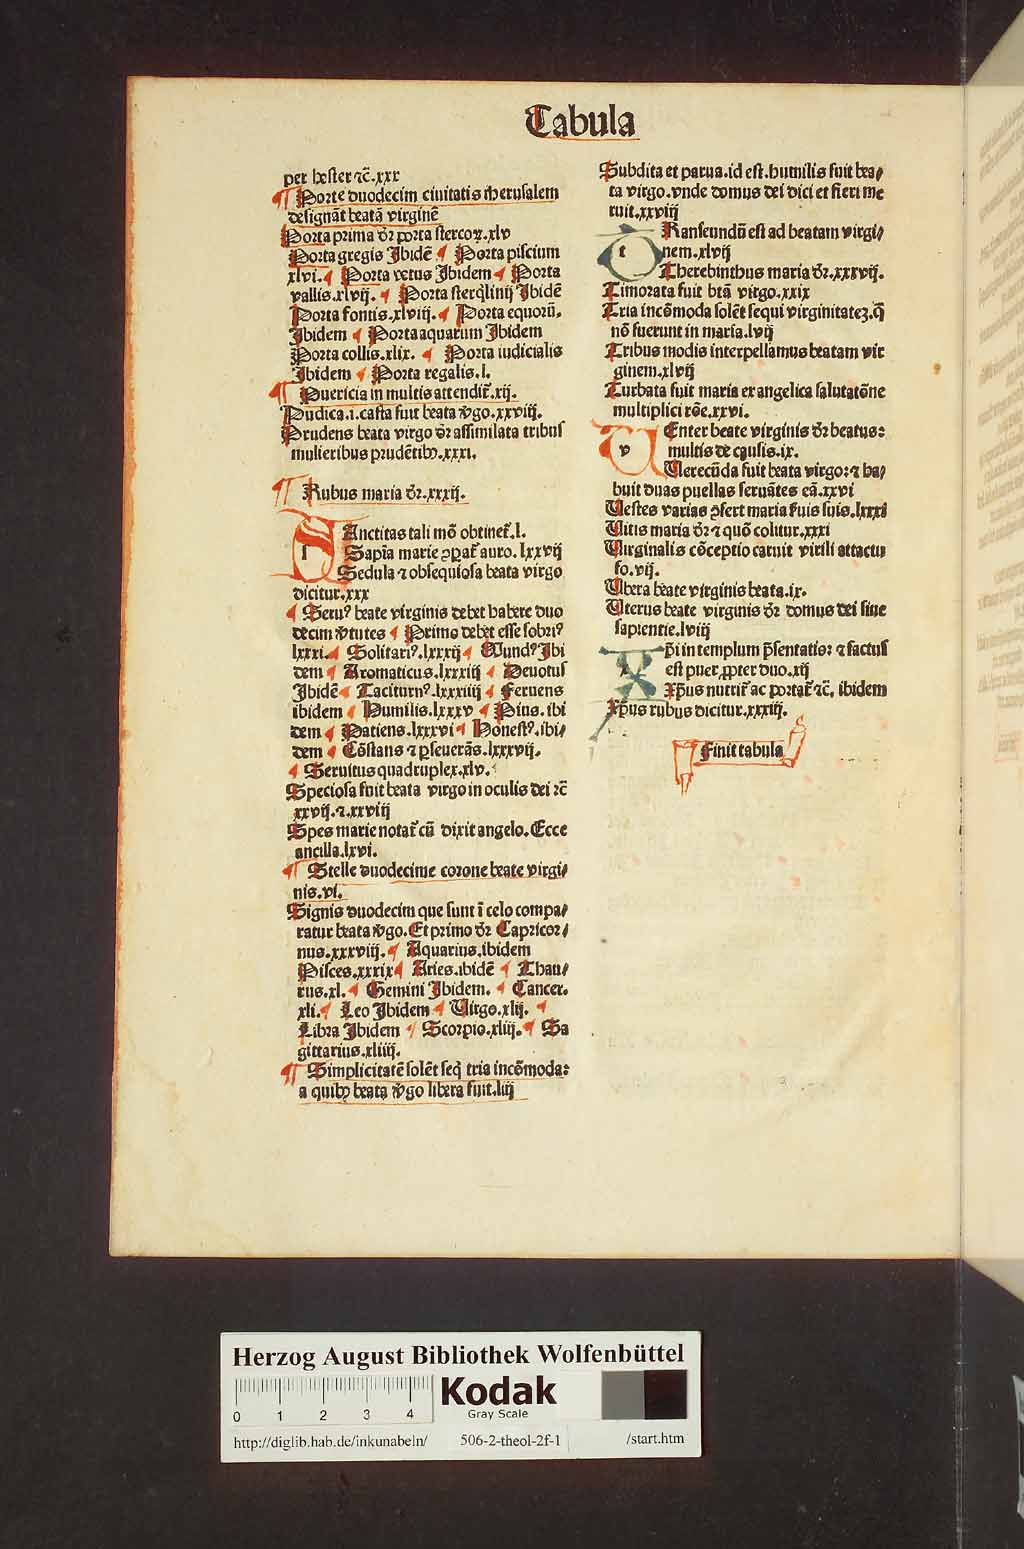 Tabula
per hester ⁊c̄.xxx
¶ Porte duodecim ciuitatis iherusalem
designāt beatā virginē
Porta prima dr̄ porta stercoꝝ.xlv
Porta gregis Ibidē ¶ Porta piscium
xlvi. ¶ Porta vetus Ibidem ¶ Porta
vallis.xlvij. ¶ Porta sterq̇linij Ibidē
Porta fontis.xlviij. ¶ Porta equorū.
Ibidem ¶ Porta aquarum Ibidem
Porta collis.xlix. ¶ Porta iudicialis
Ibidem ¶ Porta regalis.l.
¶ Puericia in multis attendit᷑.xij.
Pudica.i.casta fuit beata v̓go.xxviij.
Prudens beata virgo dr̄ assimilata tribus
mulieribus prudētibꝰ.xxxi.
¶ Rubus maria dr̄.xxxij.
s Anctitas tali mō obtinet᷑.l.
Sapīa marie ꝯꝑat᷑ auro.lxxvij
Sedula ⁊ obsequiosa beata virgo
dicitur.xxx
¶ Seruꝰ beate virginis debet habere duo
decim v̓tutes ¶ Primo debet esse sobriꝰ
lxxxi. ¶ Solitariꝰ.lxxxij ¶ Mundꝰ Ibi
dem ¶ Aromaticus.lxxxiij ¶ Deuotus
Ibidē ¶ Taciturnꝰ.lxxxiiij ¶ Feruens
ibidem ¶ Humilis.lxxxv ¶ Pius.ibi
dem ¶ Patiens.lxxxvi ¶ Honestꝰ.ibi/
dem ¶ Cōstans ⁊ ꝑseuerās.lxxxvij.
¶ Seruitus quadruplex.xlv.
Speciosa fuit beata virgo in oculis dei ⁊c̄
xxvij.⁊.xxviij
Spes marie notat᷑ cū dixit angelo.Ecce
ancilla.lxvi.
¶ Stelle duodecime corone beate virgi/
nis.vi.
Signis duodecim que sunt ī celo compa/
ratur beata v̓go.Et primo dr̄ Capricor/
nus.xxxviij. ¶ Aquarius.ibidem
Pisces.xxxix ¶ Aries.ibidē ¶ Thau/
rus.xl. ¶ Gemini Ibidem. ¶ Cancer.
xli. ¶ Leo Ibidem ¶ Virgo.xlij. ¶
Libra Ibidem ¶ Scorpio.xliij. ¶ Sa
gittarius.xliiij.
¶ Simplicitatē solēt seq̇ tria incōmoda:
a quibꝰ beata v̓go libera fuit.liij
Subdita et parua.id est.humilis fuit bea/
ta virgo.vnde domus dei dici et fieri me
ruit.xxviij
t Ranseundū est ad beatam virgi/
nem.xlvij
Therebinthus maria dr̄.xxxvij.
Timorata fuit btā virgo.xxix
Tria incōmoda solēt sequi virginitatez.q̄
nō fuerunt in maria.lvij
Tribus modis interpellamus beatam vir
ginem.xlvij
Turbata fuit maria ex angelica salutatōne
multiplici rōe.xxvi.
v Enter beate virginis dr̄ beatus:
multis de causis.ix.
Verecūda fuit beata virgo:⁊ ha/
buit duas puellas seruātes eā.xxvi
Vestes varias ꝓfert maria suis suis.lxxxi
Vitis maria dr̄ ⁊ quō colitur.xxxi
Virginalis cōceptio caruit virili attactu
fo.vij.
Vbera beate virginis beata.ix.
Vterus beate virginis dr̄ domus dei siue
sapientie.lviij
x p̄i in templum p̄sentatio: ⁊ factus
est puer ꝓpter duo.xij
Xp̄us nutrit᷑ ac portat᷑ ⁊c̄. ibidem
Xp̄us rubus dicitur.xxxiij.
Finit tabula
Herzog August Bibliothek Wolfenbüttel
0 1 2 3 4
Kodak
Gray Scale
http://diglib.hab.de/inkunabeln/ 506-2-theol-2f-1 /start.htm